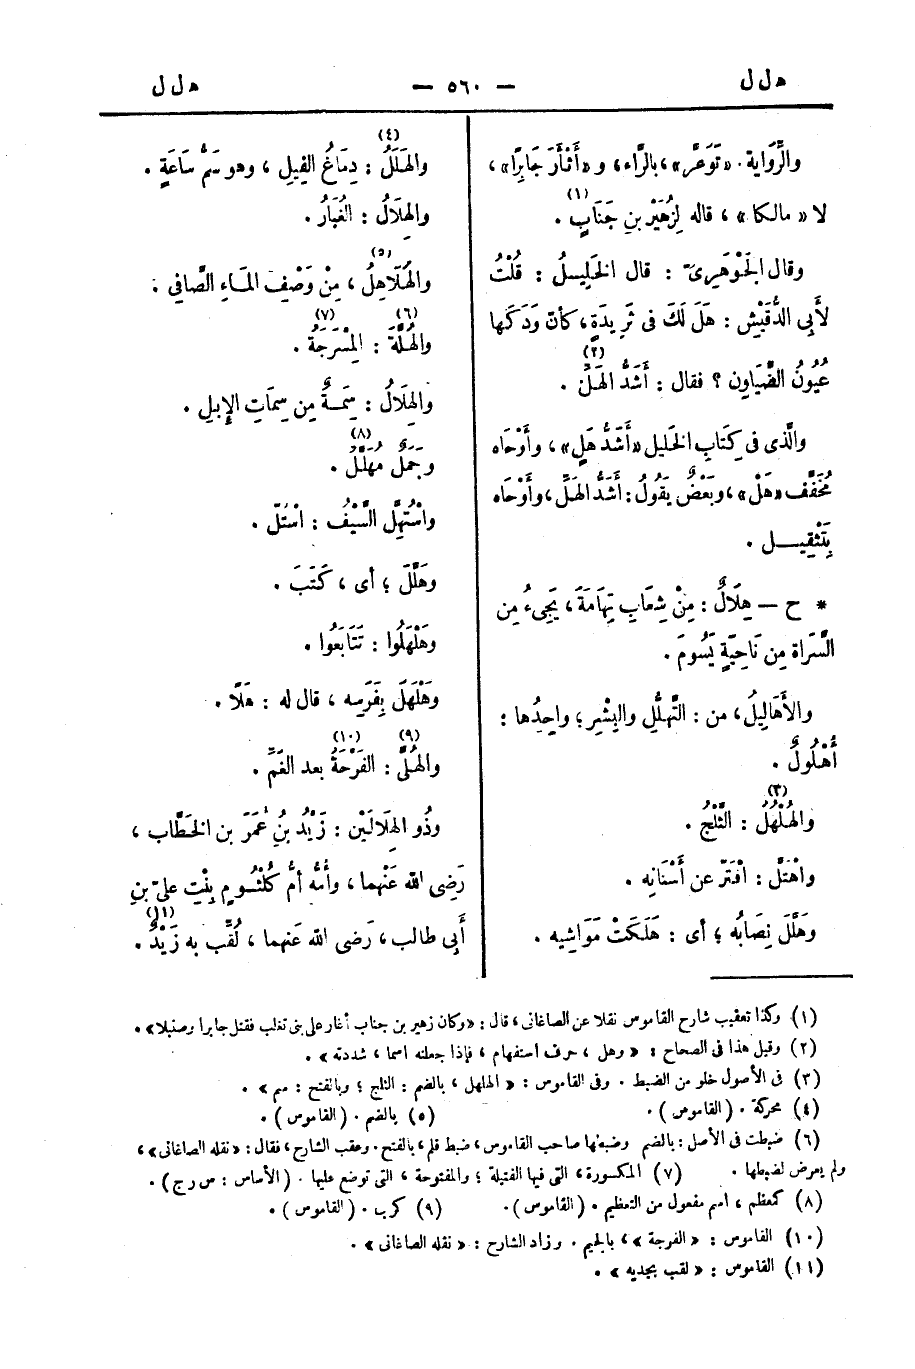 هلل — ٥٦٠ — هلل
والرِّوَايةُ . «تَوَعَّر» ، بالرَّاء، و «أَثْأَرَ جَابِرًا» ،
لا «مالكا» ، قاله لِزُهَيْر بن جَنَابٍ (١) .
وقال الجَوْهَرِىّ : قال الخَلِيلُ : قُلْتُ
لأَبِى الدُّقَيْشِ : هَلَ لَكَ فى ثَرِيدَةٍ ، كأنّ وَدَكَها
عُيُونُ الضَّيَاوِنِ ؟ فقال : أَشَدُّ الهَلِّ (٢) .
والَّذى فى كِتَابِ الخَليل «أَشَدُّ هَلٍ» ، وأَوْحَاه
مُخَفَّف «هَلْ» ، وبَعْضٌ يَقُولُ : أَشَدُّ الهَلِّ ، وأَوْحَاه
بِتَثْقِيــل .
* ح — هِلَالٌ : مِنْ شِعَابِ تِهَامَةَ ، يَجِىءُ مِن
السَّرَاة مِن نَاحِيَةِ يَسُومَ .
والأَهَالِيلُ ، من : التَّهَلُّلِ والبِشْرِ ؛ واحِدُها :
أُهْلُولٌ .
والهُلْهُلُ (٣) : الثَّلْجُ .
واهْتَلَّ : افْتَرّ عن أَسْنَانِه .
وهَلَّلَ نِصَابُه ؛ أى : هَلَكَتْ مَوَاشِيه .
والهَلَلُ (٤) : دِمَاغُ الفِيلِ ، وهو سَمُّ سَاعَةٍ .
والهِلَالُ : الغُبَارُ .
والهُلَاهِلُ (٥) ، مِنْ وَصْفِ المَـاءِ الصَّافِي .
والهُلَّةُ (٦) : المِسْرَجَةُ (٧) .
والهِلَالُ : سِمَــةٌ مِن سِمَاتِ الإِبِلِ .
وجَمَلٌ مُهَلَّلٌ (٨) .
واسْتُهِلَّ السَّيْفُ : اسْتُلّ .
وهَلَّلَ ، أى ، كَتَبَ .
وهَلْهَلُوا : تَتَابَعُوا .
وهَلْهَلَ بِفَرَسِه ، قال له : هَلًا .
والهُلَّى (٩) : الفَرْحَةُ (١٠) بعد الغَمِّ .
وذُو الهِلَالَيْنِ : زَيْدُ بنُ عُمَرَ بن الخَطَّاب ،
رَضِى الله عَنْهما ، وأُمُّه أمُّ كُلْثُــوم بِنْتِ علىّ بنِ
أَبِى طالب ، رَضى الله عَنهما ، لُقِّب به زَيْدٌ (١١) .
(١) وكذا تعقيب شارح القاموس نقلا عن الصاغانى ، قال : «وكان زهير بن جناب أغار على بنى تغلب فقتل جابرا وصنبلا» .
(٢) وقيل هذا فى الصحاح : « وهل ، حرف استفهام ، فإذا جعلته اسما ، شددته » .
(٣) فى الأصول خلو من الضبط . وفى القاموس : « الهلهل ، بالضم : الثلج ؛ وبالفتح : سم » .
(٤) محركة . (القاموس) . (٥) بالضم . (القاموس) .
(٦) ضبطت فى الأصل : بالضم وضبطها صاحب القاموس ، ضبط قلم ، بالفتح . وعقب الشارح ، فقال : «نقله الصاغانى» ،
ولم يعرض لضبطها . (٧) المكسورة ، التى فيها الفتيلة ؛ والمفتوحة ، التى توضع عليها . (الأساس : س ر ج) .
(٨) كمعظم ، اسم مفعول من التعظيم . (القاموس) . (٩) كربى . (القاموس) .
(١٠) القاموس : «الفرجة» ، بالجيم . وزاد الشارح : « نقله الصاغانى » .
(١١) القاموس : « لقب بجديه » .